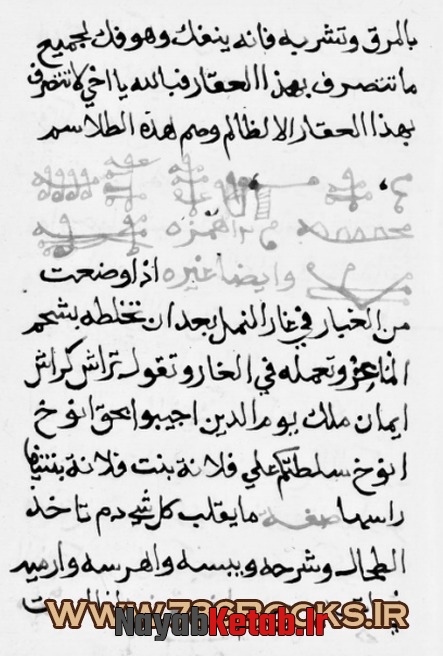 بالمرق وتشربه فانه ينفك وهوفك لجميع
ما تتصرف بهذا العقار فبالله يا اخي لا تتصرف
بهذا العقار الا لظالم وهم هذه الطلاسم
وايضا غيره اذا وضعت
من الغبار في غار النمل بعد ان تخلطه بشحم
الماعز وتعمله في الغار وتقول تراش كراش
ايمان ملك يوم الدين اجيبوا بحق انوخ
انوخ سلطتكم علي فلانة بنت فلانة
راسها صفة ما يقلب كل شي دم تاخذ
الطحال وشرحه ويبسه واهرسه وارميه
WWW.786BOOKS.IR
NayabKetab.ir